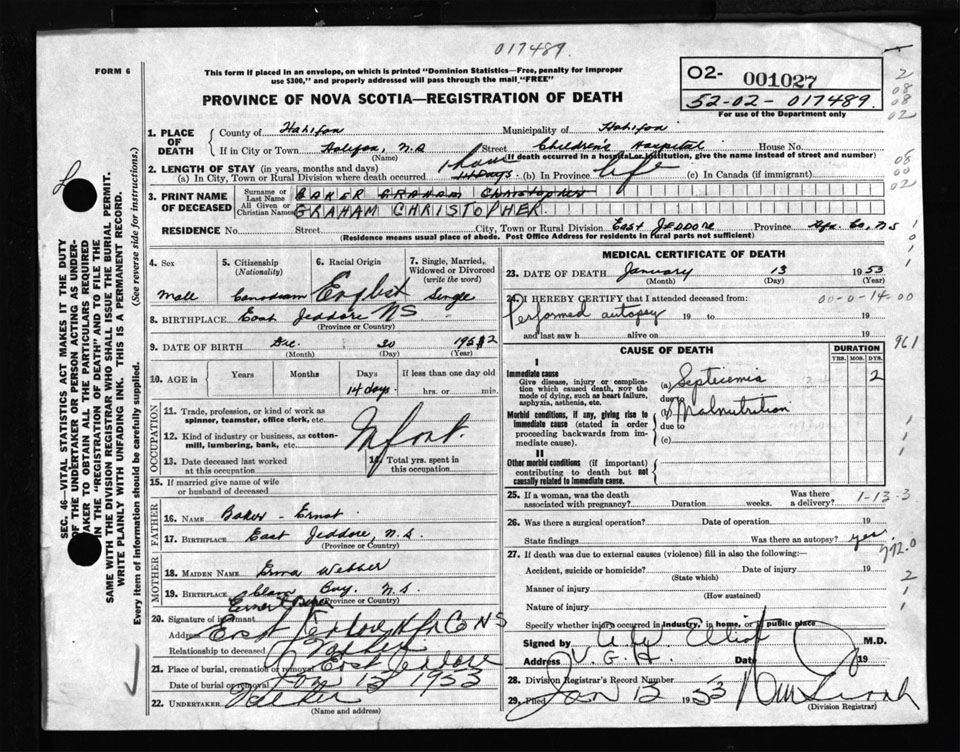 017489.
FORM 6
This form if placed in an envelope, on which is printed "Dominion Statistics—Free, penalty for improper
use $300," and properly addressed will pass through the mail "FREE"
O2- 001027
52-02-017489.
For use of the Department only
PROVINCE OF NOVA SCOTIA—REGISTRATION OF DEATH
1. PLACE OF DEATH { County of Halifax Municipality of Halifax
If in City or Town Halifax, N.S (Name) Street Children's Hospital House No.
(If death occurred in a hospital or institution, give the name instead of street and number)
2. LENGTH OF STAY (in years, months and days)
(a) In City, Town or Rural Division where death occurred 1 hour 14 days (b) In Province life (c) In Canada (if immigrant)
3. PRINT NAME OF DECEASED { Surname or Last Name BAKER GRAHAM Christopher
All Given or Christian Names GRAHAM CHRISTOPHER.
RESIDENCE No. Street City, Town or Rural Division East JEDDORE Province Hfx. Co, N.S
(Residence means usual place of abode. Post Office Address for residents in rural parts not sufficient)
4. Sex Male
5. Citizenship (Nationality) Canadian
6. Racial Origin English
7. Single, Married, Widowed or Divorced (write the word) Single
8. BIRTHPLACE East Jeddore NS
(Province or Country)
9. DATE OF BIRTH Dec. 30 1952
(Month) (Day) (Year)
10. AGE in { Years Months Days 14 days. If less than one day old hrs. or min.
OCCUPATION
11. Trade, profession, or kind of work as spinner, teamster, office clerk, etc.
12. Kind of industry or business, as cotton-mill, lumbering, bank, etc. Infant.
13. Date deceased last worked at this occupation
14. Total yrs. spent in this occupation
15. If married give name of wife or husband of deceased
FATHER
16. NAME Baker - Ernest
17. BIRTHPLACE East Jeddore, N.S.
(Province or Country)
MOTHER
18. MAIDEN NAME Erma Webber
19. BIRTHPLACE Clam Bay, N.S.
(Province or Country)
20. Signature of informant Ernest Baker
Address East Jeddore Hfx Co NS
Relationship to deceased Father
21. Place of burial, cremation or removal East Jeddore
Date of burial or removal Jan 13 1953
22. UNDERTAKER
(Name and address)
MEDICAL CERTIFICATE OF DEATH
23. DATE OF DEATH January 13 1953
(Month) (Day) (Year)
24. I HEREBY CERTIFY that I attended deceased from: 00-0-14-00
Performed autopsy 19 to 19
and last saw h alive on 19
961
CAUSE OF DEATH
DURATION
YRS. MOS. DYS.
I
Immediate cause
Give disease, injury or complication which caused death, NOT the mode of dying, such as heart failure, asphyxia, asthenia, etc.
(a) Septicemia 2
due to
Morbid conditions, if any, giving rise to immediate cause (stated in order proceeding backwards from immediate cause).
(b) Malnutrition
due to
(c)
II
Other morbid conditions (if important) contributing to death but not causally related to immediate cause.
25. If a woman, was the death associated with pregnancy? Duration weeks. Was there a delivery? 1-13-3
26. Was there a surgical operation? Date of operation 19
State findings Was there an autopsy? yes.
772.0
27. If death was due to external causes (violence) fill in also the following:—
Accident, suicide or homicide? Date of injury 19
(State which)
Manner of injury
(How sustained)
Nature of injury
Specify whether injury occurred in industry, in home, or in public place
Signed by M.D.
Address V.G.H. Date 19
28. Division Registrar's Record Number
29. Filed Jan 13 1953
(Division Registrar)
SEC. 46—VITAL STATISTICS ACT MAKES IT THE DUTY
OF THE UNDERTAKER OR PERSON ACTING AS UNDERTAKER TO OBTAIN ALL THE PARTICULARS REQUIRED
IN THE "REGISTRATION OF DEATH" AND TO FILE THE
SAME WITH THE DIVISION REGISTRAR WHO SHALL ISSUE THE BURIAL PERMIT.
WRITE PLAINLY WITH UNFADING INK. THIS IS A PERMANENT RECORD.
Every item of information should be carefully supplied. (See reverse side for instructions.)
2
08
08
02
08
00
02